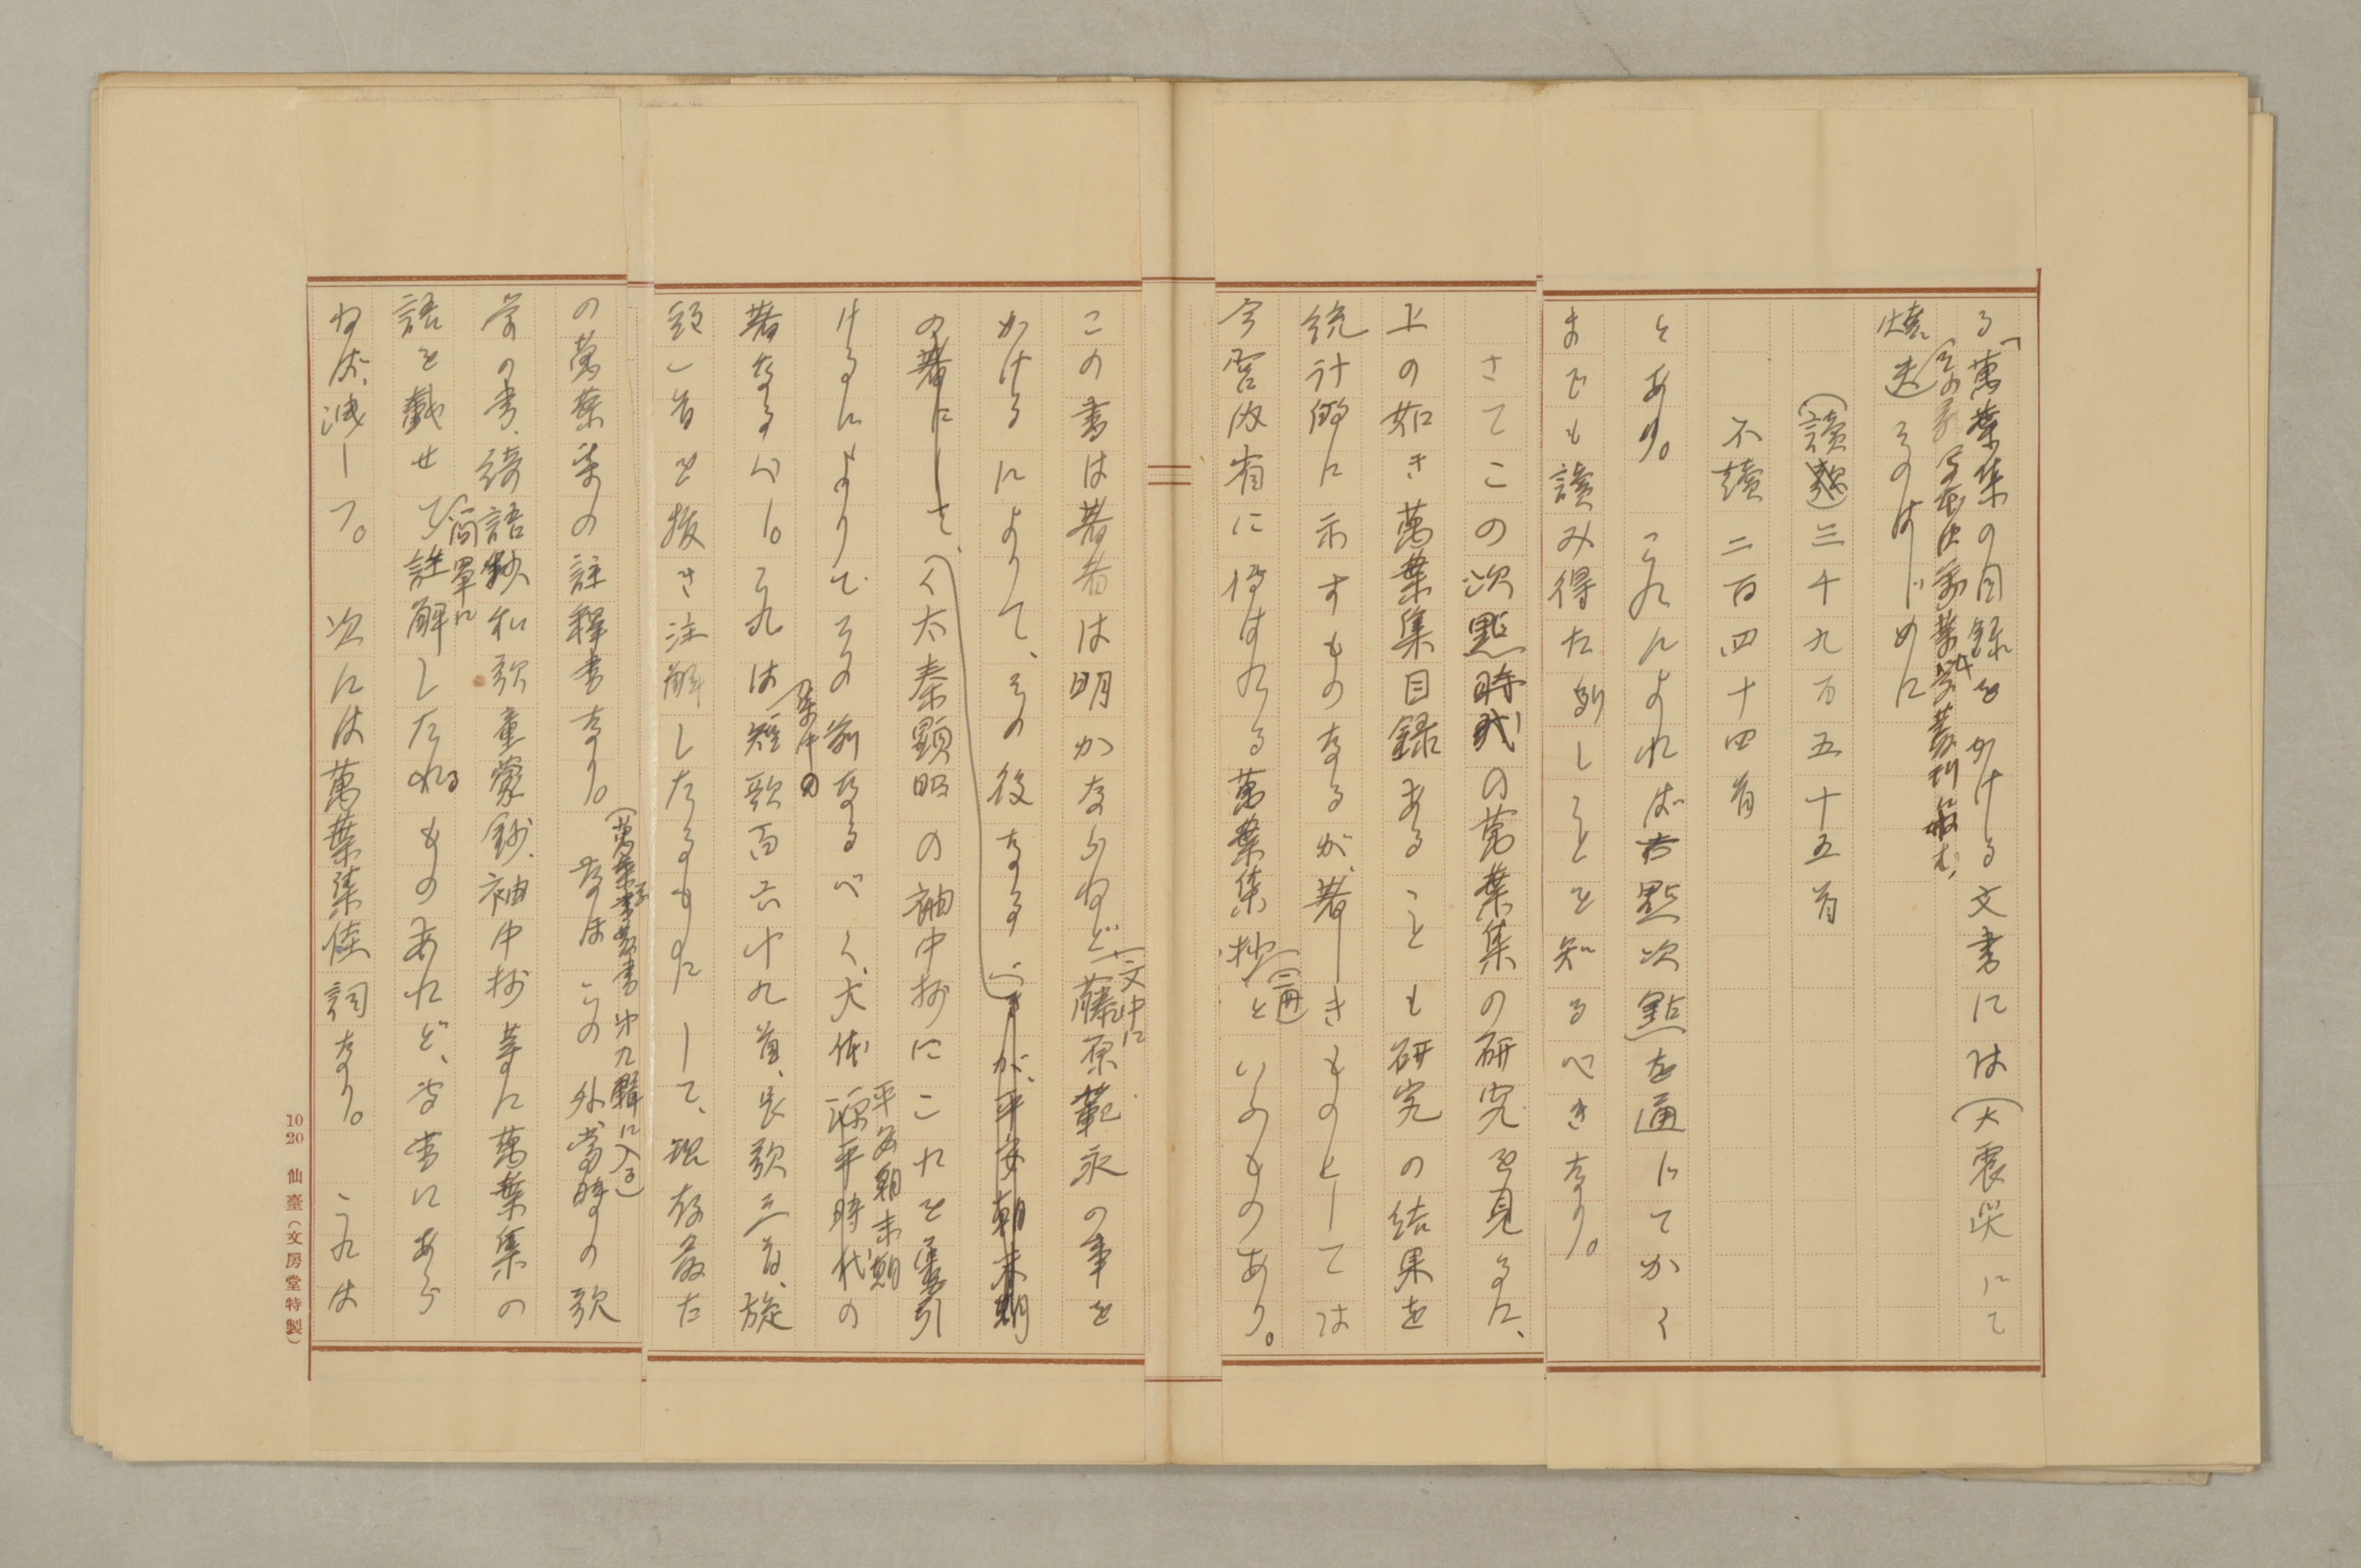 る「萬葉集の目録をかける文書には(大震災にて
燒失
そのはじめに
(讀歌)三千九百五十五首
不讀二百四十四首
とあり。これによれば古點次點を通じてかく
までも讀み得た りしことを知るべきなり。
さてこの次點時代の萬葉集の研究を見るに、
上の如き萬葉集目録あることも研究の結果を
統計的に示すものなるが、著しきものとしては
今宮内省に傳はれる萬葉集抄(一冊)といふものあり。
この書は著者は明かならねど、文中に藤原範永の事を
かけるによりて、その後なるべきが、平安朝末期
の著にして、太秦顯昭の袖中抄にこれを引
けるによりてその前なるべく、大体平安朝末期の
著なるべし。これは集中の短歌百六十九首、長歌三首、旋
頭一首を拔き注解したるものにして、現存最古
の萬葉集の註釋書なり。(萬葉學叢書第九輯に入る)なほこの外當時の歌
學の書、綺語抄、和歌童蒙鈔、袖中抄等に萬葉集の
語を載せて簡單に註解したるものあれど、専書にあら
ねば、減しつ。次には萬葉集佳詞なり。これは
10 20 仙臺(文房堂特製)